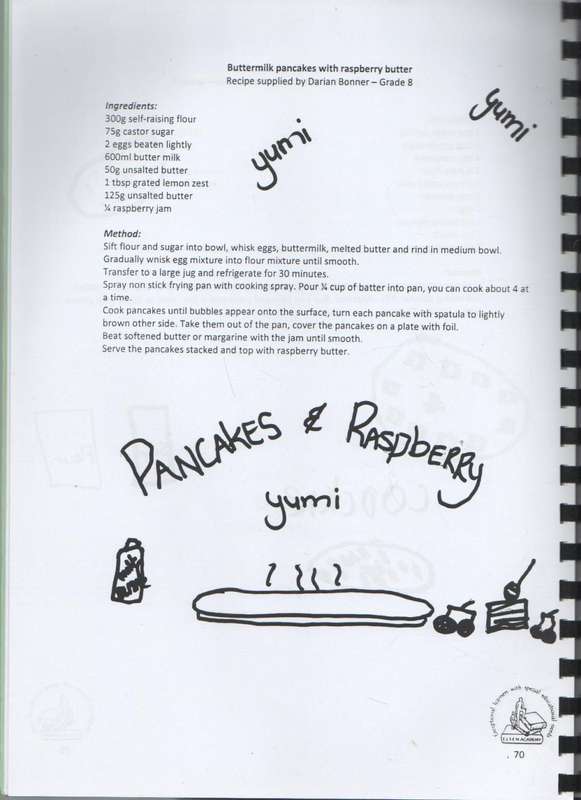 Buttermilk pancakes with raspberry butter
Recipe supplied by Darian Bonner – Grade 8
yumi
yumi
Ingredients:
300g self-raising flour
75g castor sugar
2 eggs beaten lightly
600ml butter milk
50g unsalted butter
1 tbsp grated lemon zest
125g unsalted butter
¼ raspberry jam
Method:
Sift flour and sugar into bowl, whisk eggs, buttermilk, melted butter and rind in medium bowl.
Gradually whisk egg mixture into flour mixture until smooth.
Transfer to a large jug and refrigerate for 30 minutes.
Spray non stick frying pan with cooking spray. Pour ¼ cup of batter into pan, you can cook about 4 at
a time.
Cook pancakes until bubbles appear onto the surface, turn each pancake with spatula to lightly
brown other side. Take them out of the pan, cover the pancakes on a plate with foil.
Beat softened butter or margarine with the jam until smooth.
Serve the pancakes stacked and top with raspberry butter.
PANCAKES & RASpbERRY
yumi
Exceptional learners with special educational needs
E.L.S.E.N ACADEMY
70